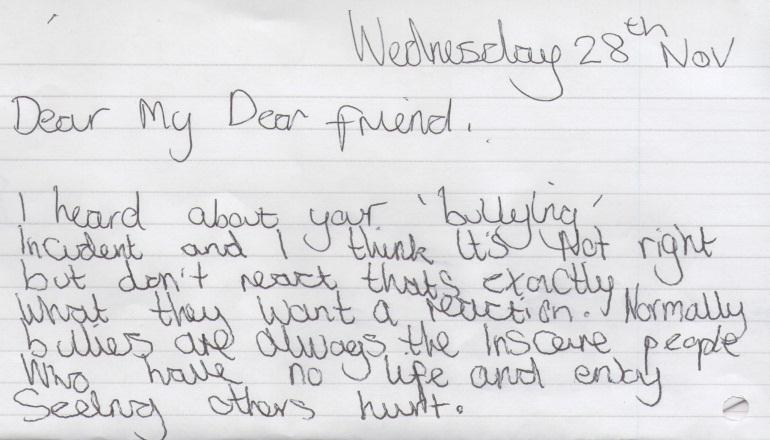 Wednesday 28th Nov
Dear My Dear friend.
I heard about your 'bullying'
Incident and I think It's Not right
but don't react thats exactly
What they Want a reaction. Normally
bullies are always the Inscure people
Who have no life and enjoy
Seeing others hurt.